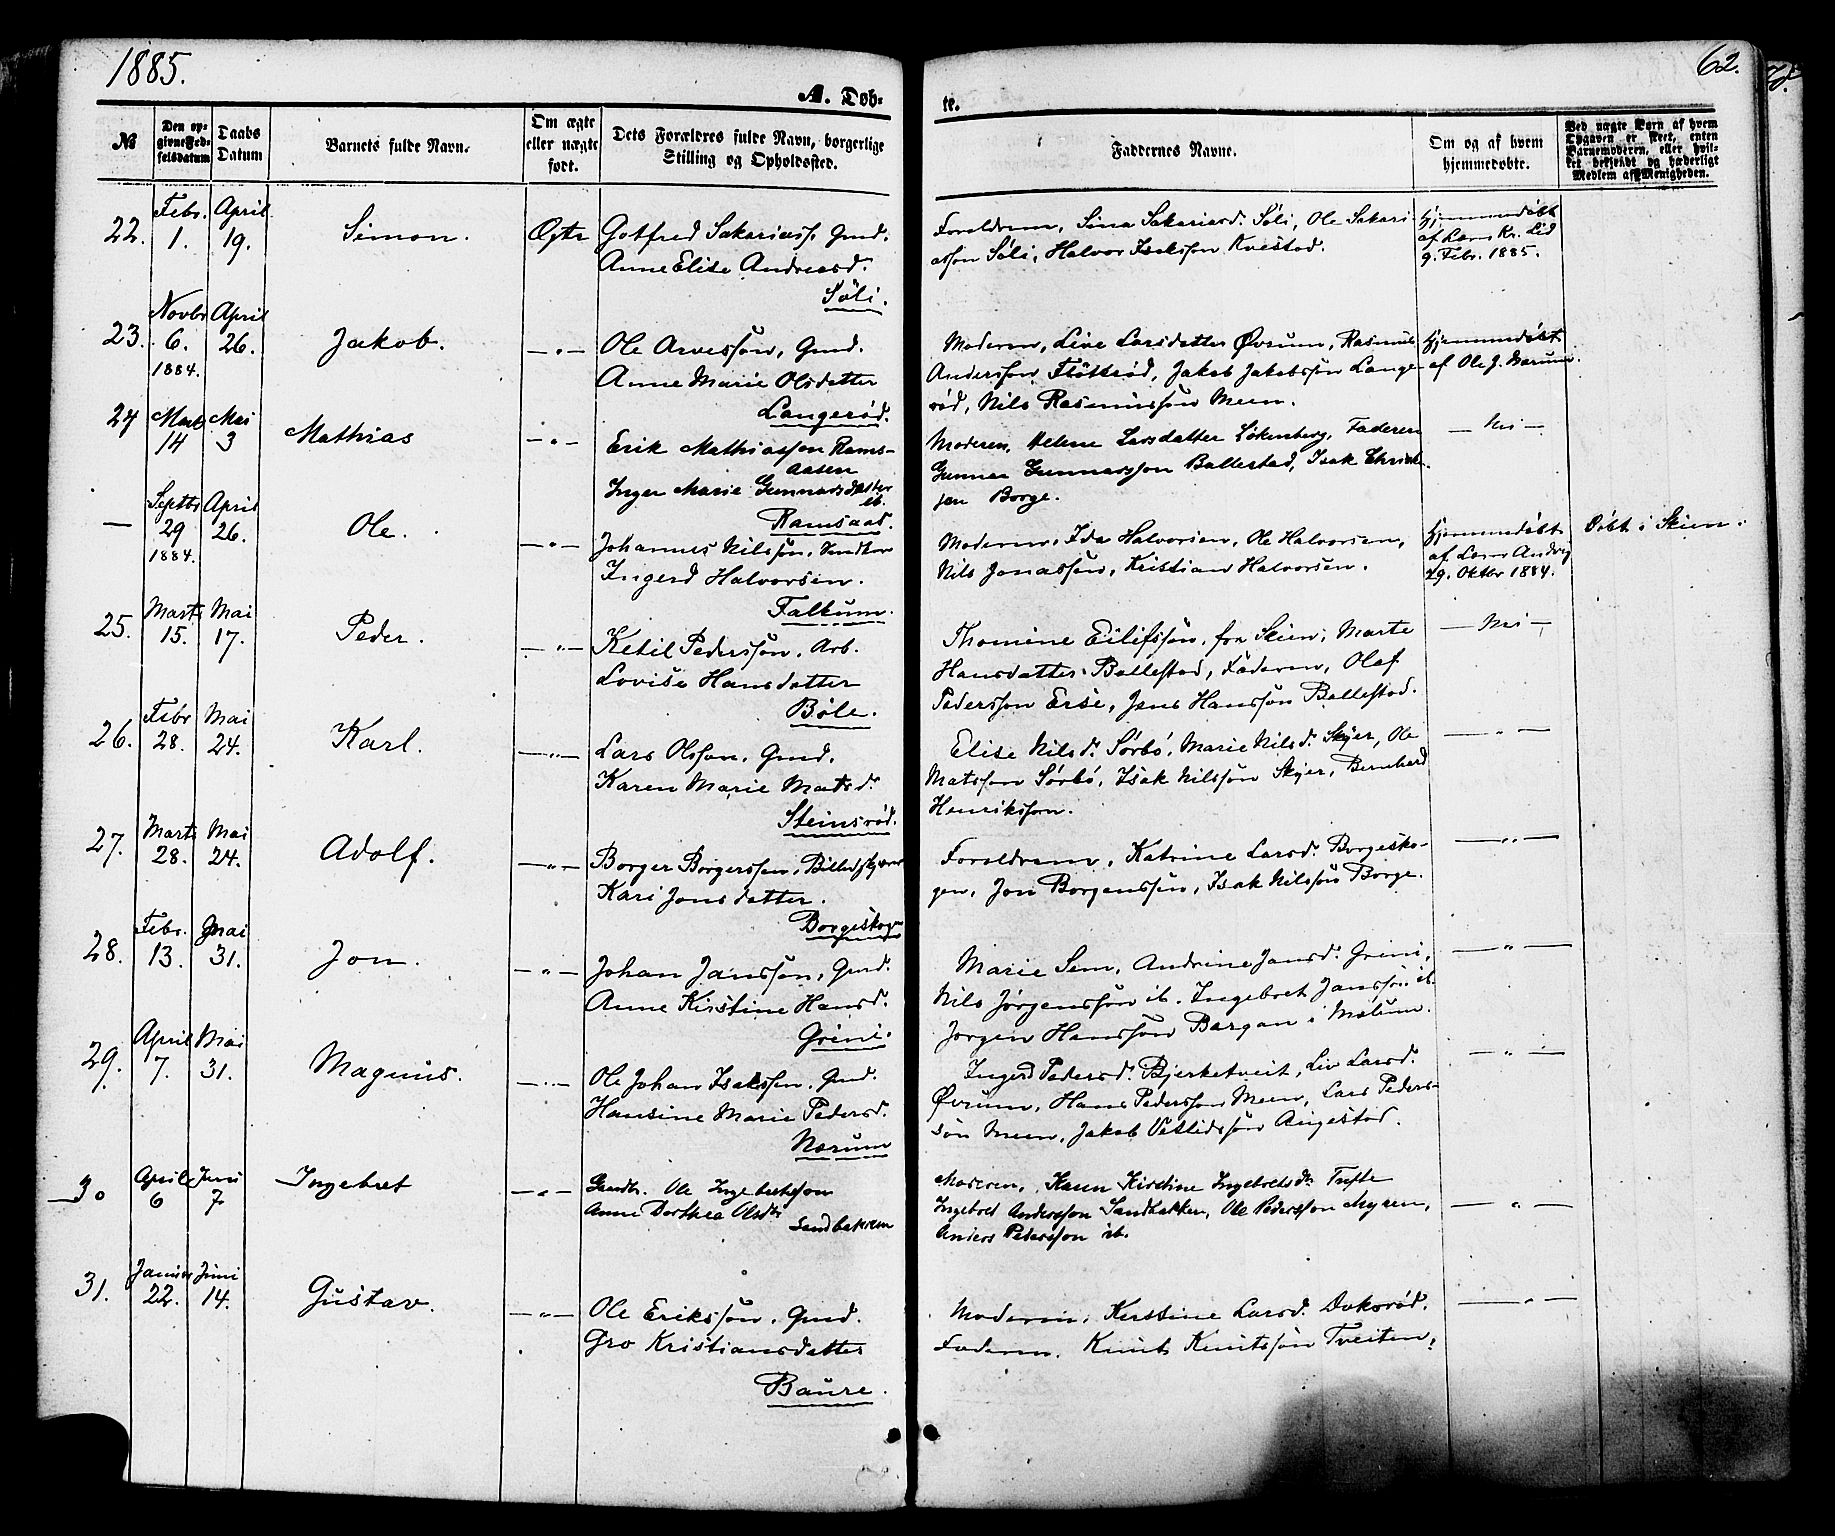 1885.
A. Døb-
te.
62.
№
Den op-
givne Fød-
selsdatum
Daabs
Datum
Barnets fulde Navn.
Om ægte
eller uægte
født.
Dets Forældres fulde Navn, borgerlige
Stilling og Opholdssted.
Faddernes Navne.
Om og af hvem
hjemmedøbte.
Ved uægte Børn af hvem
Opgaven er sket, enten
Barnemoderen, eller hvil-
ket bekjendt og hæderligt
Medlem af Menigheden.
22. Febr. 1. April 19. Simon. Ægte Gotfred Sakariass. Gmd.
Anne Elise Andreasd.
Søli.
Forældrene, Sina Sakariasd. Søli, Ole Sakari-
asson Søli, Halvor Isaksson Kvestad.
Hjemmedøbt
af Lærer Kr. Lid
9. Febr. 1885.
23. Novbr 6. 1884. April 26. Jakob. — " — Ole Arvesson, Gmd.
Anne Marie Olsdatter
Langerød.
Moderen, Live Larsdatter Øvrum, Rasmus
Andersson Fløtterød, Jakob Jakobsson Lange-
rød, Nils Rasmusson Meen.
Hjemmedøbt
af Ole J. Nærum.
24 Marts 14 Mai 3 Mathias — " — Erik Mathiasson Rams-
aasen
Inger Marie Gunnarsdatter
ib.
Ramsaas.
Moderen, Helene Larsdatter Løkenberg, Faderen
Gunnar Gunnarsson Ballestad, Isak Christen-
sen Borge.
— Nei —
— Septbr 29 1884. April 26. Ole. — " — Johannes Nilsson,
Ingerd Halvorsen.
Falkum.
Moderen, Ida Halvorsen, Ole Halvorsen,
Nils Jonassøn, Kristian Halvorsen.
Hjemmedøbt
af Lærer Andvig
29. Oktbr 1884.
Døbt i Skien.
25. Marts 15. Mai 17. Peder. — " — Ketil Pedersson, Arb.
Lovise Hansdatter
Bøle.
Thomine Eilifsson, fra Skien, Marte
Hansdatter Ballestad, Faderen, Olaf
Pedersson Ersé, Jens Hansson Ballestad.
— Nei —
26. Febr 28. Mai 24. Karl. — " — Lars Olsson, Gmd.
Karen Marie Matsd.
Steinsrød.
Elise Nilsd. Sørbø, Marie Nilsd. Skyer, Ole
Matsson Sørbø, Isak Nilsson Skyer, Bernhard
Henriksson.
— " —
27. Marts 28. Mai 24. Adolf. — " — Borger Borgersson, Billedskjærer
Kari Jonsdatter.
Borgeskogen
Forældrene, Katrine Larsd. Borgesko-
gen, Jon Borgersson, Isak Nilsson Borge.
— " —
28. Febr. 13. Mai 31. Jon. — " — Johan Jansson, Gmd.
Anne Kirstine Hansd.
Grini.
Marie Sem, Andrine Jansd. Grini,
Nils Jørgensson ib. Ingebret Jansson ib.
Jørgen Hansson Bergan i Mælum.
— " —
29. April 7. Mai 31. Magnus. — " — Ole Johan Isaksson, Gmd.
Hansine Marie Pedersd.
Nærum
Ingerd Pedersd. Bjerketveit, Liv Larsd.
Øvrum, Hans Pedersson Meen, Lars Peders-
søn Meen, Jakob Vetlidsson Aagestad.
— " —
30 April 6 Juni 7 Ingebret — " — Gaardbr. Ole Ingebretsson
Anne Dorthea Olsdtr
Sandbakken
Moderen, Karen Kirstine Ingebretsdtr Tufte
Ingebret Andersson Sandbakken, Ole Pedersson Myren,
Anders Pedersson ib.
— " —
31. Januar 22. Juni 14. Gustav. — " — Ole Eriksson, Gmd.
Gro Kristiansdatter
Baure.
Moderen, Kerstine Larsd. Doksrød.
Faderen, Knut Knutsson Tveiten.
— " —